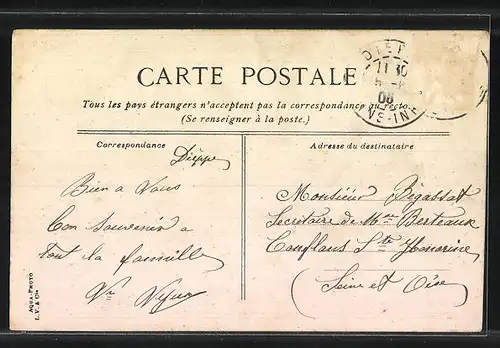 CARTE POSTALE
Tous les pays étrangers n'acceptent pas la correspondance au recto.
(Se renseigner à la poste.)
Correspondance
Adresse du destinataire
Dieppe
Bien a Vous
Bon Souvenir a
tout la famille
Monsieur Bigassat
Secrétaire de Mr Berteaux
Conflans Ste Honorine
(Seine et Oise
DIEP
11 30
08
NE-INF
AQUA-PHOTO
L. V. & Cie